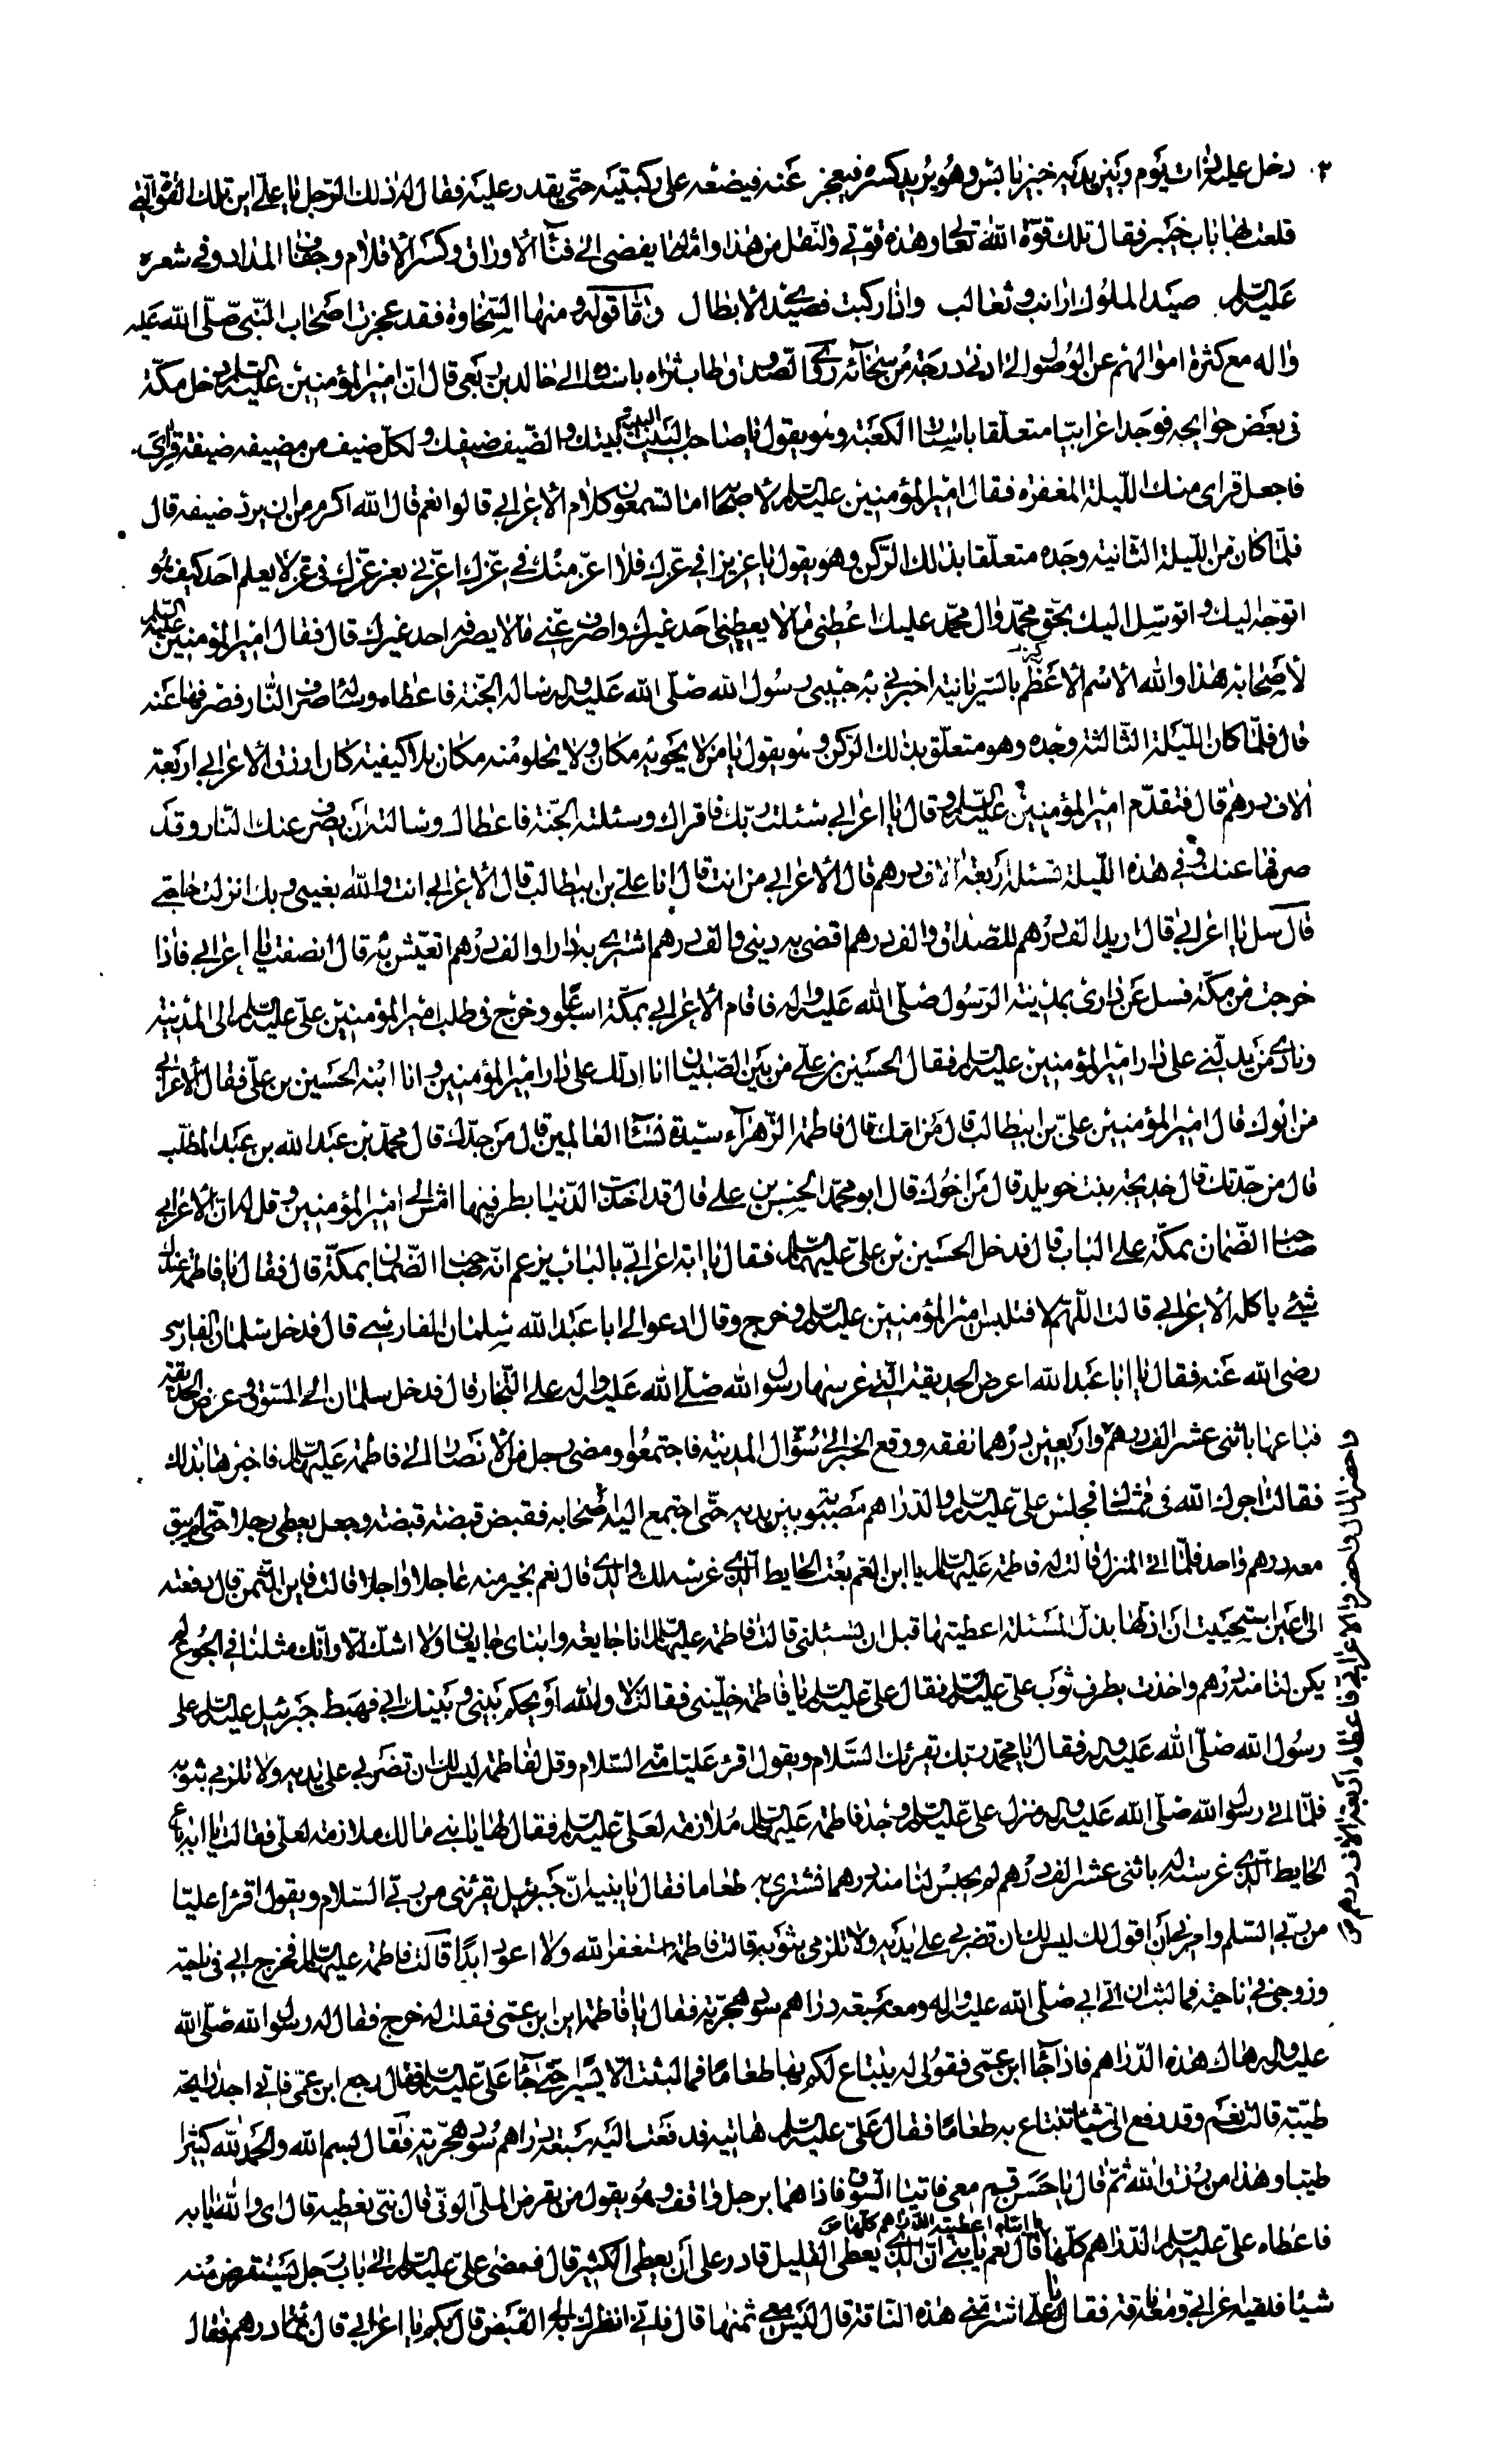 دخل عليه ذات يوم وبين يديه خبز يابس وهو يريد كسره فيعجز عنه فيضعه على ركبتيه حتى يقدر عليه فقال له ذلك الرجل يا علي اين تلك القوة التي
قلعت بها باب خيبر فقال تلك قوة الله تعالى وهذه قوتي ولننقل من هذا وامثاله يفضى الى فناء الاوراق وكسر الاقلام وجفاف المداد وفي شعره
عليه السلم صيد الملوك ارانب وثعالب واذا ركبت فصيدي الابطال واما قوله ومنها السخاوة فقد عجزت اصحاب النبي صلى الله عليه
واله مع كثرة اموالهم عن الوصول الى ادنى درجة من سخائه روى الصدوق طاب ثراه باسناده الى خالد بن ربعي قال ان امير المؤمنين عليه السلم دخل مكة
في بعض حوايجه فوجد اعرابيا متعلقا باستار الكعبة وهو يقول يا صاحب البيت البيت بيتك والضيف ضيفك ولكل ضيف من مضيفه ضيفة قرى
فاجعل قراى منك الليلة المغفرة فقال امير المؤمنين عليه السلم لاصحابه اما تسمعون كلام الاعرابي قالوا نعم قال الله اكرم من ان يرد ضيفه قال
فلما كان من الليلة الثانية وجده متعلقا بذلك الركن وهو يقول يا عزيزا في عزك فلا اعز منك في عزك اعزني بعز عزك في عز لا يعلم احد كيف هو
اتوجه اليك واتوسل اليك بحق محمد وال محمد عليك اعطني ما لا يعطيني احد غيرك واصرف عني ما لا يصرفه احد غيرك قال فقال امير المؤمنين عليه السلم
لاصحابه هذا والله الاسم الاعظم بالسريانية اخبرني به حبيبي رسول الله صلى الله عليه واله سأله الجنة فاعطاه وسأله صرف النار فصرفها عنه
قال فلما كان الليلة الثالثة وجده وهو متعلق بذلك الركن وهو يقول يا من لا يحويه مكان ولا يخلو منه مكان بلا كيفية كان ارزق الاعرابي اربعة
الاف درهم قال فتقدم امير المؤمنين عليه السلم وقال يا اعرابي سئلت ربك فاقراك وسئلته الجنة فاعطاك وسالته ان يصرف عنك النار وقد
صرفها عنك وفي هذه الليلة تسئله اربعة الاف درهم قال الاعرابي من انت قال انا علي بن ابيطالب قال الاعرابي انت والله بغيتي وبك انزلت حاجتي
قال سل يا اعرابي قال اريد الف درهم للصداق والف درهم اقضى به ديني والف درهم اشترى به دارا والف درهم اتعيش به قال انصفت يا اعرابي فاذا
خرجت من مكة فسل عن دارى بمدينة الرسول صلى الله عليه واله فاقام الاعرابي بمكة اسبوعا وخرج في طلب امير المؤمنين علي عليه السلم الى المدينة
ونادى من يدلني على دار امير المؤمنين عليه السلم فقال الحسين بن علي من بين الصبيان انا ادلك على دار امير المؤمنين وانا ابنه الحسين بن علي فقال الاعرابي
من ابوك قال امير المؤمنين علي بن ابيطالب قال من امك قال فاطمة الزهراء سيدة نساء العالمين قال من جدك قال محمد بن عبد الله بن عبد المطلب
قال من جدتك قال خديجة بنت خويلد قال من اخوك قال ابو محمد الحسن بن علي قال قد اخذت الدنيا بطرفيها امش الى امير المؤمنين وقل له ان الاعرابي
صاحب الضمان بمكة على الباب قال فدخل الحسين بن علي عليهما السلم فقال يا ابه اعرابي بالباب يزعم انه صاحب الضمان بمكة قال فقال يا فاطمة عندك
شيء ياكله الاعرابي قالت اللهم لا فتلبس امير المؤمنين عليه السلم وخرج وقال ادعوا لي ابا عبد الله سلمان الفارسي قال فدخل سلمان الفارسي
رضى الله عنه فقال يا ابا عبد الله اعرض الحديقة التي غرسها رسول الله صلى الله عليه واله على التجار قال فدخل سلمان الى السوق وعرض الحديقة
فباعها باثنى عشر الف درهم واربعين درهما نفقه ووقع الخبر الى سؤال المدينة فاجتمعوا ومضى رجل من الانصار الى فاطمة عليها السلم فاخبرها بذلك
فقالت اجرك الله في ممشاك فجلس علي عليه السلم والدراهم مصبوبة بين يديه حتى اجتمع اليه اصحابه فقبض قبضة قبضة وجعل يعطى رجلا رجلا حتى لم يبق
معه درهم واحد فلما اتى المنزل قالت له فاطمة عليها السلم يا ابن العم بعت الحايط الذي غرسه لك والدى قال نعم بخير منه عاجلا واجلا قالت فاين الثمن قال دفعته
الى اعين استحييت ان اذلها بذل المسئلة اعطيتها قبل ان تسئلني قالت فاطمة عليها السلم انا جايعة وابناى جايعان ولا اشك الا وانك مثلنا في الجوع لم
يكن لنا منه درهم واخذت بطرف ثوب علي عليه السلم فقال علي عليه السلم يا فاطمة خليني فقالت لا والله او يحكم بيني وبينك ابي فهبط جبرئيل عليه السلم على
رسول الله صلى الله عليه واله فقال يا محمد ربك يقرئك السلام ويقول اقرء عليا مني السلام وقل لفاطمة ليس لك ان تضربي على يديه ولا تلزمي بثوبه
فلما اتى رسول الله صلى الله عليه واله منزل علي عليه السلم وجد فاطمة عليها السلم ملازمة لعلي عليه السلم فقال لها يا بنية مالك ملازمة لعلي فقالت يا ابه باع
الحايط الذي غرسته له باثنى عشر الف درهم لم يحبس لنا منه درهما نشترى به طعاما فقال يا بنية ان جبرئيل يقرئني من ربي السلام ويقول اقرا عليا
من ربي السلم وامرني ان اقول لك ليس لك ان تضربي على يديه ولا تلزمي بثوبه قالت فاطمة استغفر الله ولا اعود ابدا قالت فاطمة عليها السلم فخرج ابي في ناحية
وزوجي في ناحية فما لبث ان اتى ابي صلى الله عليه واله ومعه سبعة دراهم سود هجرية فقال يا فاطمة اين ابن عمي فقلت له خرج فقال له رسول الله صلى الله
عليه واله هاك هذه الدراهم فاذا جاء ابن عمي فقولى له يبتاع لكم بها طعاما فما لبثت الا يسيرا حتى جاء علي عليه السلم فقال رجع ابن عمي فاني اجد رايحة
طيبة قالت نعم وقد دفع الى شيئا تبتاع به طعاما فقال علي عليه السلم هاتيه فدفعت اليه سبعة دراهم سود هجرية فقال بسم الله والحمد لله كثيرا
طيبا وهذا من رزق الله ثم قال يا حسن قم معي فاتيا السوق فاذا هما برجل واقف وهو يقول من يقرض الملي الوفي قال بني نعطيه قال اى والله يا ابه
فاعطاه علي عليه السلم الدراهم كلها يا ابتاه اعطيته الدراهم كلها قال نعم يا بني ان الذي يعطى القليل قادر على ان يعطى الكثير قال فمضى علي عليه السلم الى باب رجل يستقرض منه
شيئا فلقيه اعرابي ومعه ناقة فقال يا علي اشتر مني هذه الناقة قال ليس معي ثمنها قال فاني انظرك به الى القبض قال بكم يا اعرابي قال بمائة درهم فقال
احضر المال واحضر الاعرابي فاعطاه اربعة الاف درهم